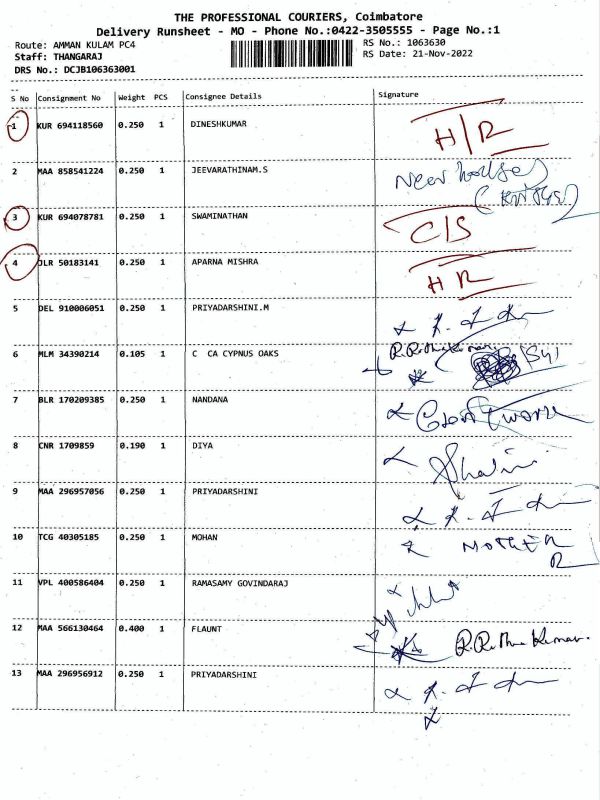 THE PROFESSIONAL COURIERS, Coimbatore
Delivery Runsheet - MO - Phone No.:0422-3505555 - Page No.:1
Route: AMMAN KULAM PC4
RS No.: 1063630
Staff: THANGARAJ
RS Date: 21-Nov-2022
DRS No.: DCJB106363001
S No Consignment No Weight PCS Consignee Details Signature
1 KUR 694118560 0.250 1 DINESHKUMAR H/R
2 MAA 858541224 0.250 1 JEEVARATHINAM.S
3 KUR 694078781 0.250 1 SWAMINATHAN C/S
4 JLR 50183141 0.250 1 APARNA MISHRA H R
5 DEL 910006051 0.250 1 PRIYADARSHINI.M
6 MLM 34390214 0.105 1 C CA CYPNUS OAKS
7 BLR 170209385 0.250 1 NANDANA
8 CNR 1709859 0.190 1 DIYA Shalini
9 MAA 296957056 0.250 1 PRIYADARSHINI
10 TCG 40305185 0.250 1 MOHAN MOTHER
11 VPL 400586404 0.250 1 RAMASAMY GOVINDARAJ
12 MAA 566130464 0.400 1 FLAUNT
13 MAA 296956912 0.250 1 PRIYADARSHINI